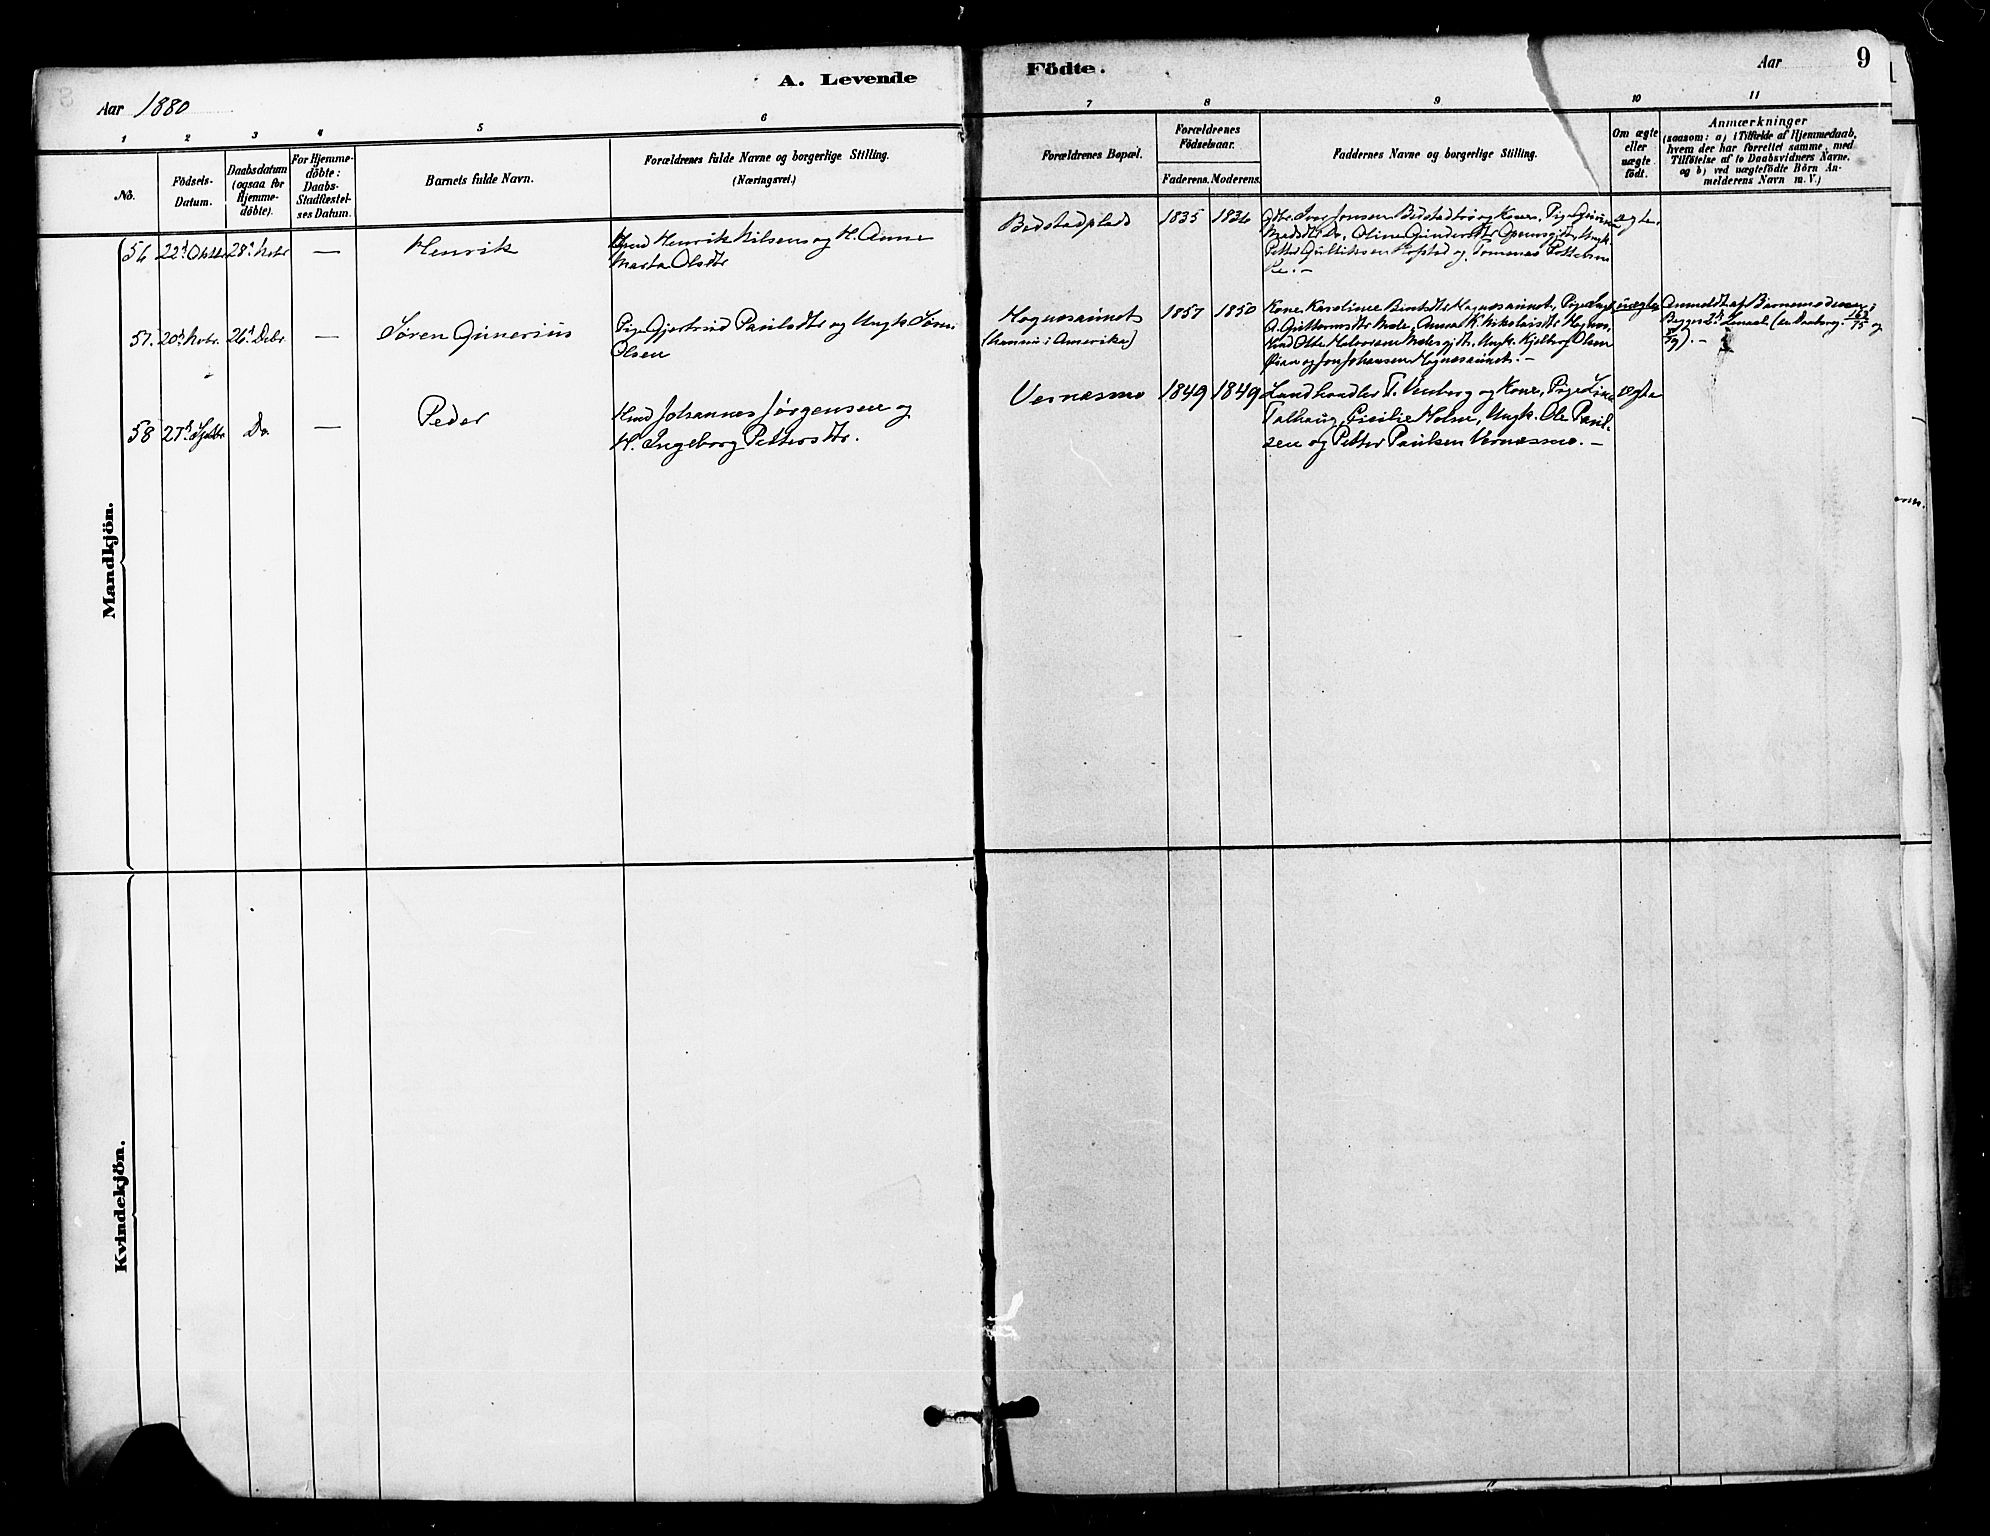 A. Levende
Födte.
Aar 1880
Aar
9
1
2
3
4
5
6
7
8
9
10
11
No.
Födsels-
Datum.
Daabsdatum
(ogsaa for
Hjemme-
döbte).
For Hjemme-
döbte:
Daabs-
Stadfæstel-
ses Datum.
Barnets fulde Navn.
Forældrenes fulde Navne og borgerlige Stilling.
(Næringsvei.)
Forældrenes Bopæl.
Forældrenes
Födselsaar.
Faderens.
Moderens.
Faddernes Navne og borgerlige Stilling.
Om ægte
eller
uægte
födt.
Anmærkninger
(saasom: a) i Tilfælde af Hjemmedaab,
hvem der har forrettet samme, med
Tilföielse af to Daabsvidners Navne,
og b) ved uægtefödte Börn An-
melderens Navn m. V.)
Mandkjön.
56
22d Oktbr
28d Nvbr
—
Henrik
Hmd Henrik Nilsen og H. Anne
Marta Olsdtr
Bedstadplads
1835
1836
Gbr. Iver Jonsen Bedstad og Kone, Pige
Madsdtr Do, Oline Gundersdtr
Petter Hofstad og Tomenas Pettersen
ægte
57.
20d Nvbr.
26d Debr
—
Sören Gunerius
Pige Gjertrud Paulsdtr og Ungk. Sören
Olsen
Hognesaunet
(hannu i Amerika)
1857
1850
Kone Karoline Hognesaunet, Pige
Anna K. Nikolaisdtr Hognes,
Ungk. Kjeltorf Olsen
og Jon Johansen Hognesaunet. —
uægte
Anmeldt af Barnemoderen;
Begges 2d Lemaal
58
27d Septbr
Do
—
Peder
Hmd Johannes Jörgensen og
H. Ingeborg Pettersdtr.
Vernæsmo
1849
1849
Landhandler T. Venborg og Kone, Pige Line
Talhaug, Cecilie Holm, Ungk. Ole Paul-
sen og Petter Paulsen Vernæsmo. —
ægte
Kvindekjön.